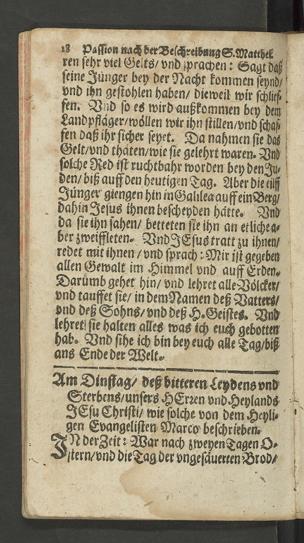 18 Passion nach der Beschreibung S. Matthei.
ren sehr viel Gelts/ vnd sprachen: Sagt daß
seine Jünger bey der Nacht kommen seynd/
vnd ihn gestohlen haben/ dieweil wir schlief-
fen. Vnd so es wird außkommen bey dem
Landpfläger/ wöllen wir ihn stillen/ vnd schaf-
fen daß ihr sicher seyet. Da nahmen sie das
Gelt/ vnd thäten/ wie sie gelehrt waren. Vnd
solche Red ist ruchtbahr worden bey den Ju-
den/ biß auff den heutigen Tag. Aber die eilff
Jünger giengen hin in Galilea auff ein Berg/
dahin Jesus ihnen bescheyden hätte. Vnd
da sie ihn sahen/ betteten sie ihn an etliche a-
ber zweiffleten. Vnd JEsus tratt zu ihnen/
redet mit ihnen/ vnd sprach: Mir ist gegeben
allen Gewalt im Himmel vnd auff Erden.
Darümb gehet hin/ vnd lehret alle Völcker/
vnd tauffet sie/ in dem Namen deß Vatters/
vnd deß Sohns/ vnd deß H. Geistes. Vnd
lehret sie halten alles was ich euch gebotten
hab. Vnd sihe ich bin bey euch alle Tag/ biß
ans Ende der Welt.
Am Dinstag/ deß bitteren Leydens vnd
Sterbens/ unsers HErzen vnd Heylands
JEsu Christi/ wie solche von dem Heyli-
gen Evangelisten Marco beschrieben.
IN der Zeit: War nach zweyen Tagen O-
stern/ vnd die Tag der vngesäuerten Brod/